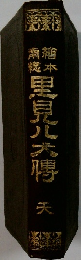 繪本
南總
里見八犬傳
天